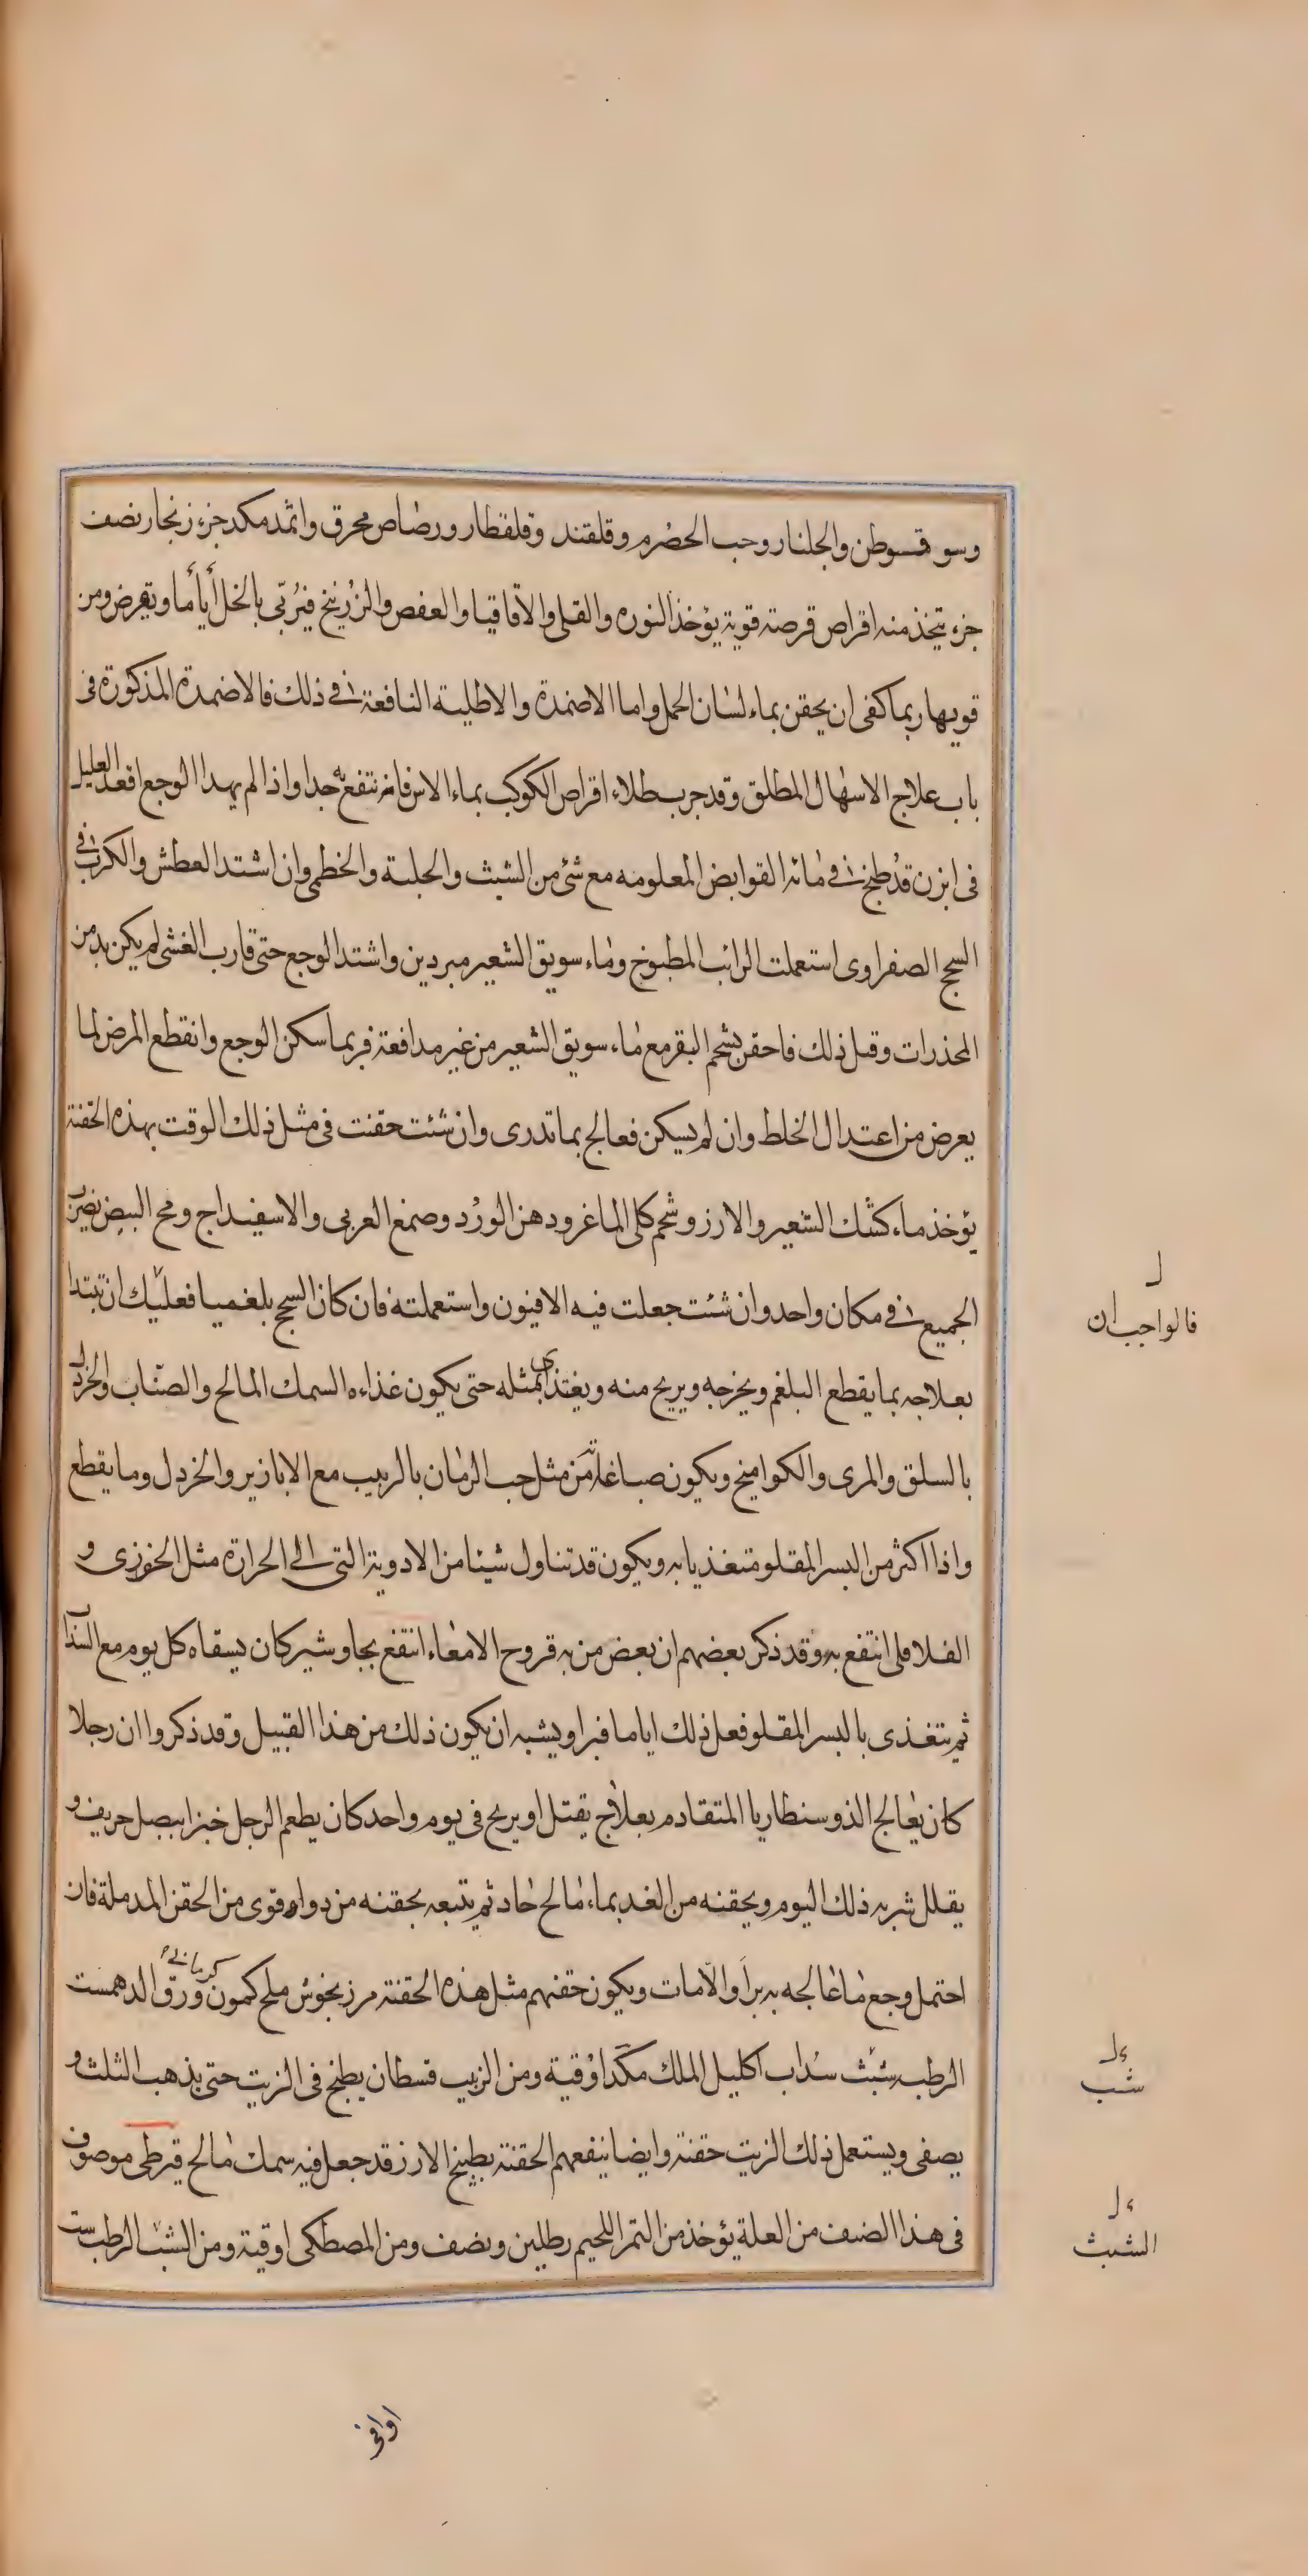 وسوقسوطن والجلنار وحب الحصرم وقلقند وقلقطار ورصاص محرق واثمد مكد جزء زنجار نصف
جزء يتخذ منه اقراص قرصة قوية يؤخذ النوره والقلى والاقاقيا والعفص والزرنيخ فيربى بالخل أياما ويقرض ومن
قويها ربما كفى ان يحقن بماء لسان الحمل واما الاضمدة والاطلية النافعة فى ذلك فالاضمدة المذكورة فى
باب علاج الاسهال المطلق وقد جرب طلاء اقراص الكوكب بماء الاس فانه ينتفع به جدا واذا لم يهدا الوجع اقعد العليل
فى ابزن قد طبخ فى مائه القوابض المعلومه مع شئ من الشبث والحلبة والخطمى وان اشتد العطش والكرب فى
السحج الصفراوى استعملت الرائب المطبوخ وماء سويق الشعير مبردين واشتد الوجع حتى قارب الغشى لم يكن بد من
المخدرات وقبل ذلك فاحقن بشحم البقر مع ماء سويق الشعير من غير مدافعة فربما سكن الوجع وانقطع المرض لما
يعرض من اعتدال الخلط وان لم يسكن فعالج بما تدرى وان شئت حقنت فى مثل ذلك الوقت بهذه الحقنة
يؤخذ ماء كشك الشعير والارز وشحم كلى الماغر ودهن الورد وصمغ العربى والاسفيداج ومح البيض يضرب
الجميع فى مكان واحد وان شئت جعلت فيه الافيون واستعملته فان كان السحج بلغميا فعليك ان تبتدا
بعلاجه بما يقطع البلغم ويخرجه ويريح منه ويغتذى بمثله حتى يكون غذاءه السمك المالح والصناب والخردل
بالسلق والمرى والكواميخ ويكون صباغاته من مثل حب الرمان بالزبيب مع الابازير والخردل وما يقطع
واذا اكثر من البسر المقلو متغذيا به ويكون قد تناول شيئا من الادوية التى الى الحرارة مثل الخوزى و
الفلافلى انتفع به وقد ذكر بعضهم ان بعض من به قروح الامعاء انتفع بجاوشير كان يسقاه كل يوم مع السذاب
ثم يتغذى بالبسر المقلو فعل ذلك اياما فبرا ويشبه ان يكون ذلك من هذا القبيل وقد ذكروا ان رجلا
كان يعالج الذوسنطاريا المتقادم بعلاج يقتل او يريح فى يوم واحد كان يطعم الرجل خبزا ببصل حريف و
يقلل شربه ذلك اليوم ويحقنه من الغد بماء مالح حاد ثم يتبعه بحقنه من دواء قوى من الحقن المدملة فان
احتمل وجع ما عالجه به برأ والا مات ويكون حقنهم مثل هذه الحقنة مرزنجوش ملح كمون كرمانى ورق الدهمست
الرطب شبث سذاب اكليل الملك مكد اوقية ومن الزيت قسطان يطبخ فى الزيت حتى يذهب الثلث و
يصفى ويستعمل ذلك الزيت حقنة وايضا ينفعهم الحقنة بطبيخ الارز قد جعل فيه سمك مالح قيرطى موصوف
فى هذا الصنف من العلة يؤخذ من التمر اللحيم رطلين ونصف ومن المصطكى اوقية ومن الشب الرطب ست
ل
فالواجب ان
ء ل
شب
ء ل
الشبث
اواقى